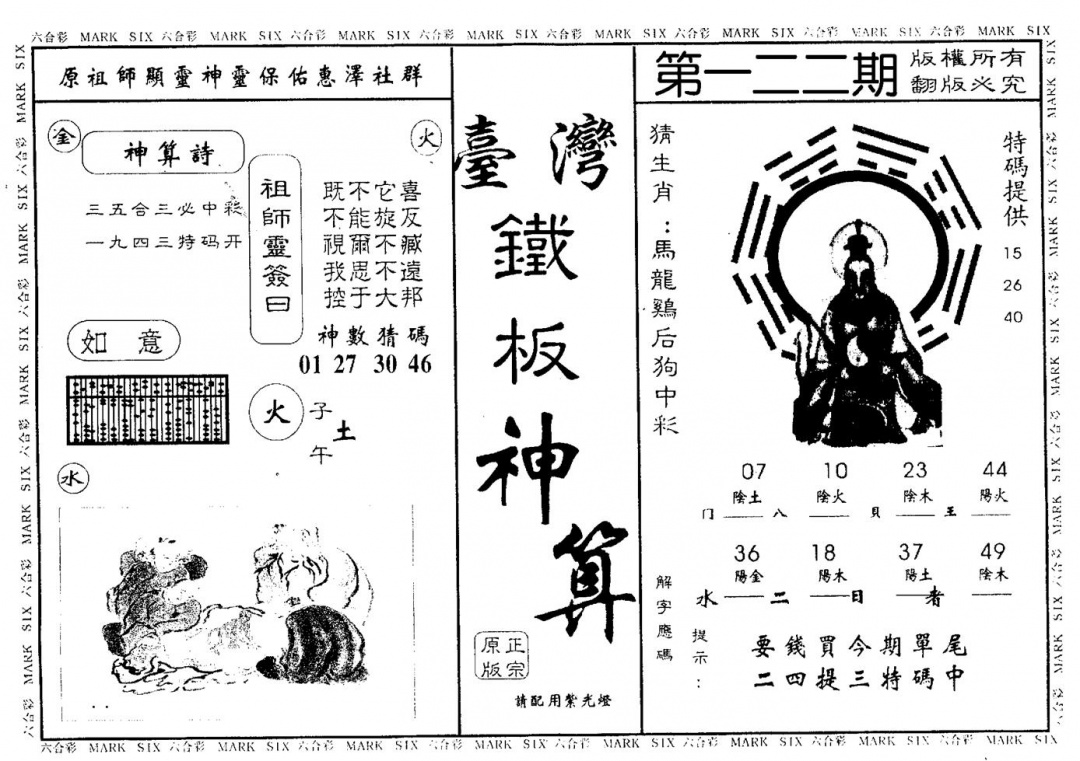 六合彩 MARK SIX 六合彩 MARK SIX 六合彩 MARK SIX 六合彩 MARK SIX 六合彩 MARK SIX 六合彩 MARK SIX 六合彩 MARK SIX 六合彩 MARK SIX
原祖師顯靈神靈保佑惠澤社群
金
火
神算詩
三五合三必中彩
一九四三特码开
祖師靈簽曰
既不它喜
不能旋反
視爾不臧
我思不遠
控于大邦
神數猜碼
01 27 30 46
如意
火
子
土
午
水
臺灣
鐵
板
神
算
原版
正宗
請配用紫光燈
第一二二期
版權所有
翻版必究
猜生肖:馬龍鷄后狗中彩
特碼提供
15
26
40
07 10 23 44
陰土 陰火 陰木 陽火
门 八 貝 王
36 18 37 49
陽金 陽木 陽土 陰木
水 二 日 者
解字應碼
提示:
要錢買今期單尾
二四提三特碼中
六合彩 MARK SIX 六合彩 MARK SIX 六合彩 MARK SIX 六合彩 MARK SIX 六合彩 MARK SIX 六合彩 MARK SIX 六合彩 MARK SIX 六合彩 MARK SIX